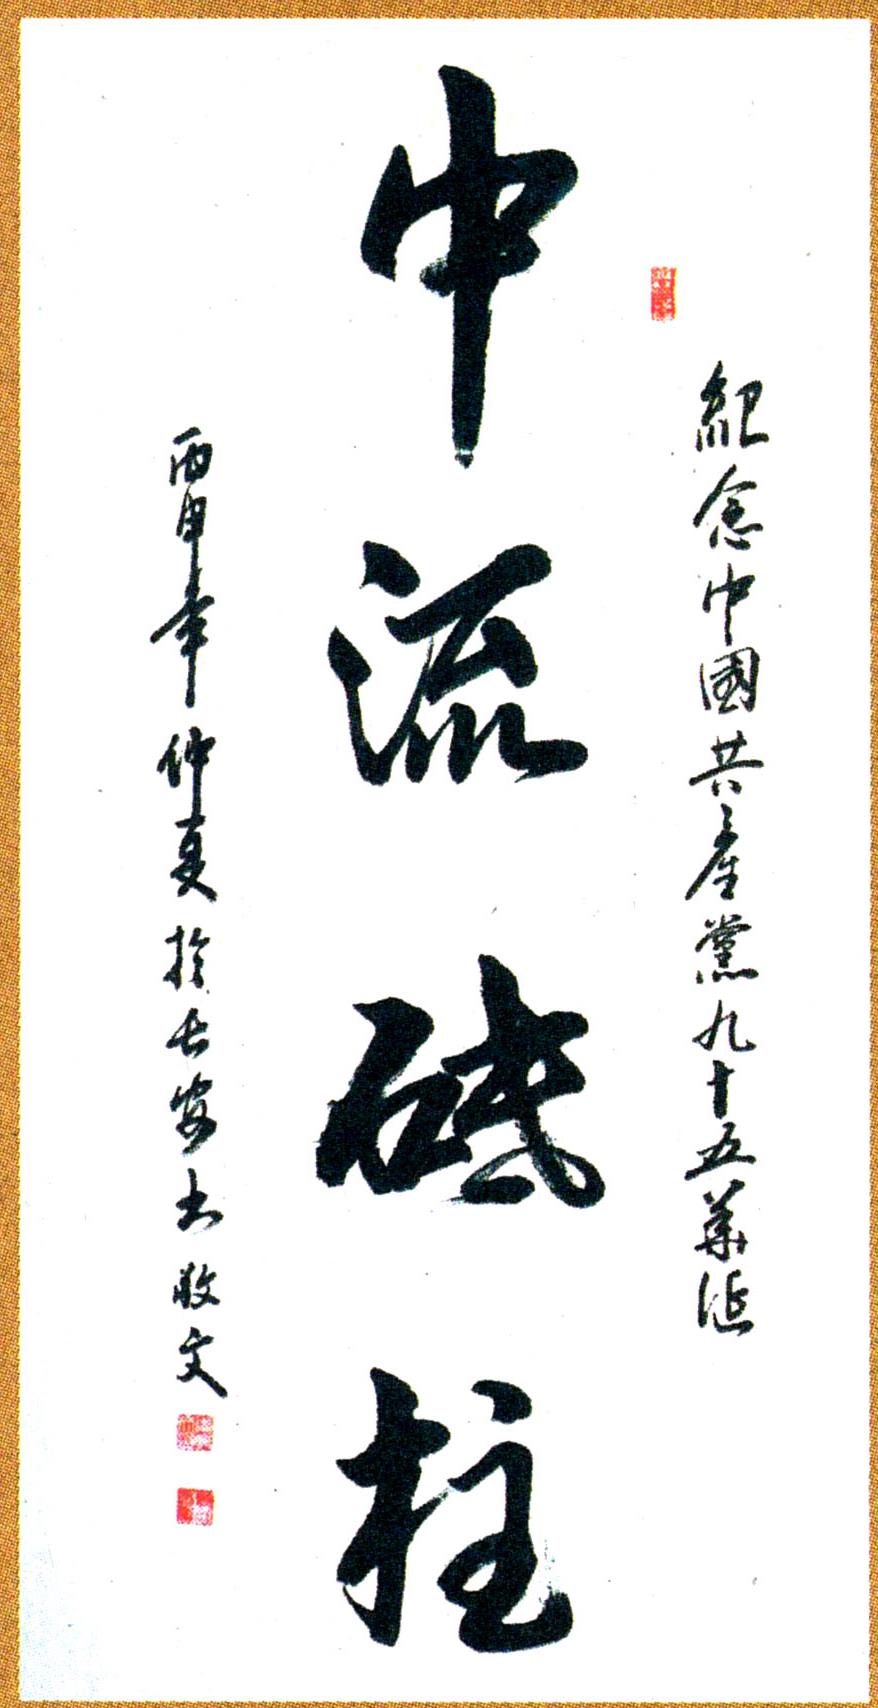 紀念中國共產黨九十五華誕
中流砥柱
丙申年仲夏於長安大敬文